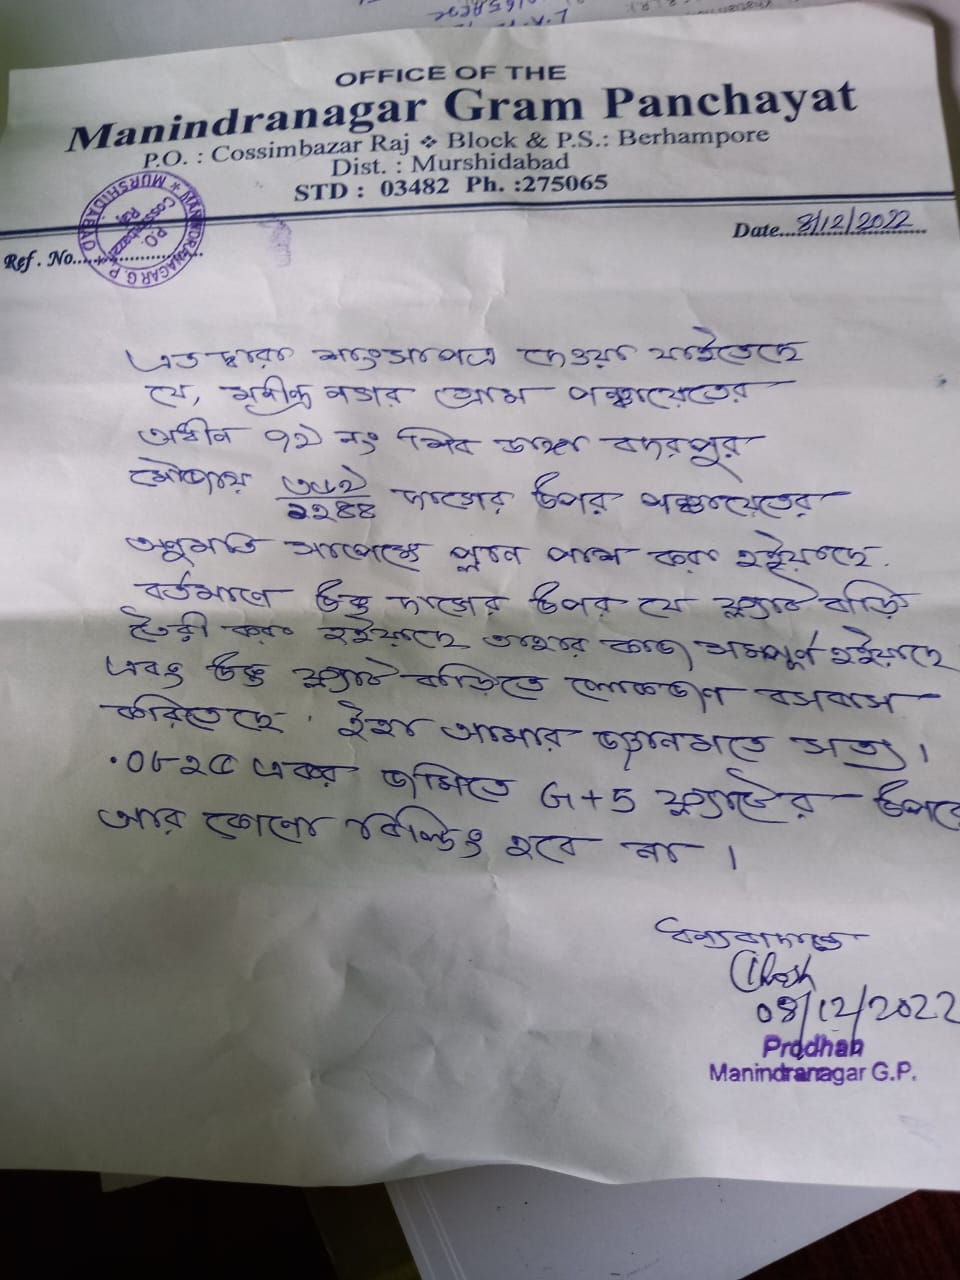 OFFICE OF THE
Manindranagar Gram Panchayat
P.O. : Cossimbazar Raj ❖ Block & P.S.: Berhampore
Dist. : Murshidabad
STD : 03482 Ph. :275065
MANINDRANAGAR G. P. * MURSHIDABAD
P.O. Cossimbazar Raj
Date...8/12/2022
Ref. No.
এতদ্বারা শংসাপত্র দেওয়া যাইতেছে
যে, মণীন্দ্র নগর গ্রাম পঞ্চায়েতের
অধীন ৭২ নং শিব ডাঙ্গা বদরপুর
মৌজায় ৩৫২/২২৪৪ দাগের উপর পঞ্চায়েতের
অনুমতি সাপেক্ষে প্ল্যান পাশ করা হইয়াছে.
বর্তমানে উক্ত দাগের উপর যে ফ্ল্যাট বাড়ি
তৈরী করা হইয়াছে তাহার কাজ সম্পূর্ণ হইয়াছে
এবং উক্ত ফ্ল্যাট বাড়িতে লোকজন বসবাস
করিতেছে। ইহা আমার জ্ঞানমতে সত্য।
.০৮২৫ একর জমিতে G+5 ফ্ল্যাটের উপরে
আর কোনো বিল্ডিং হবে না।
ধন্যবাদান্তে
Ghosh
08/12/2022
Pradhan
Manindranagar G.P.